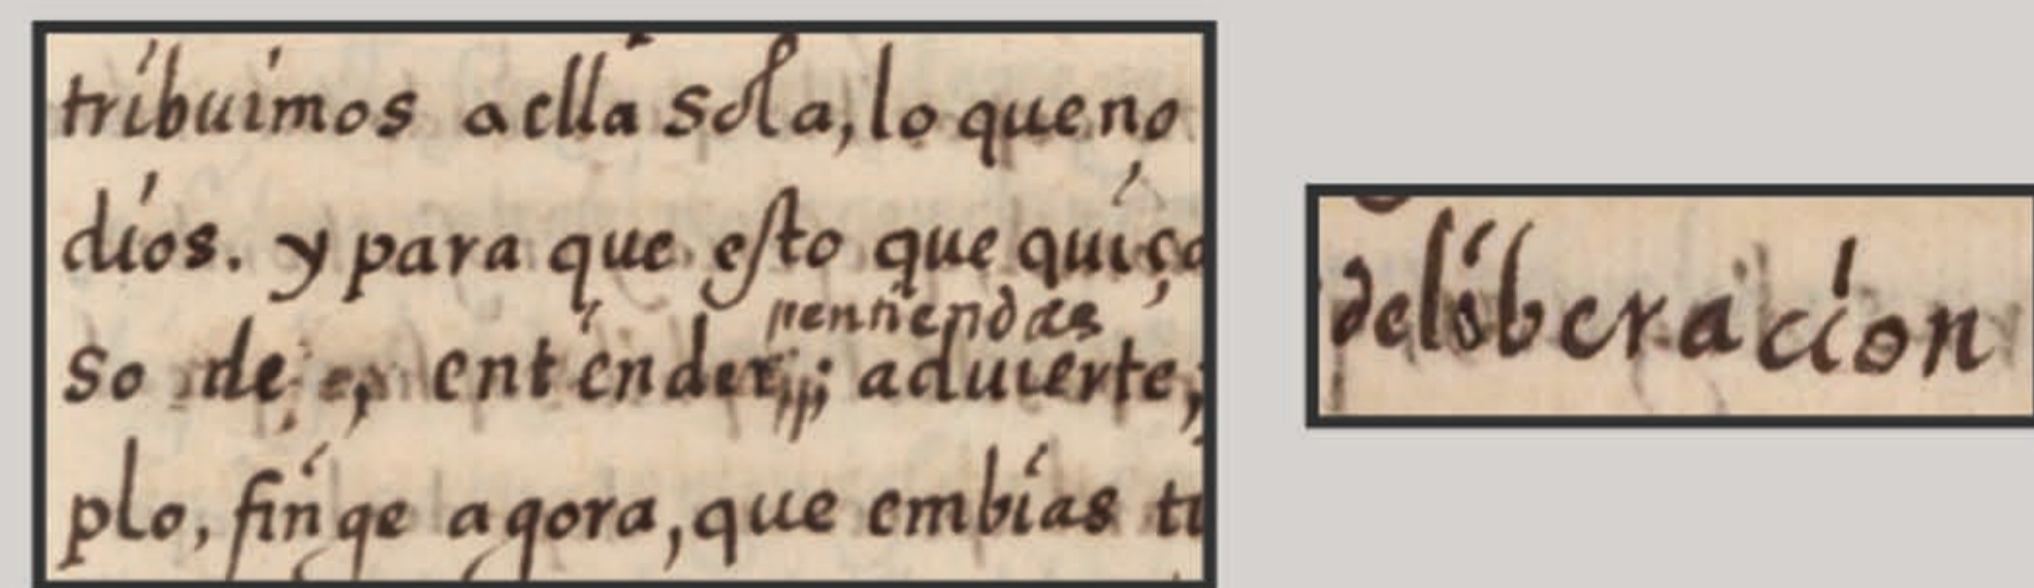 tribuimos a ella sola, lo que no
dios. y para que esto que quiça
so de entender; aduierte,
plo, finge agora, que embias tu
deliberacion